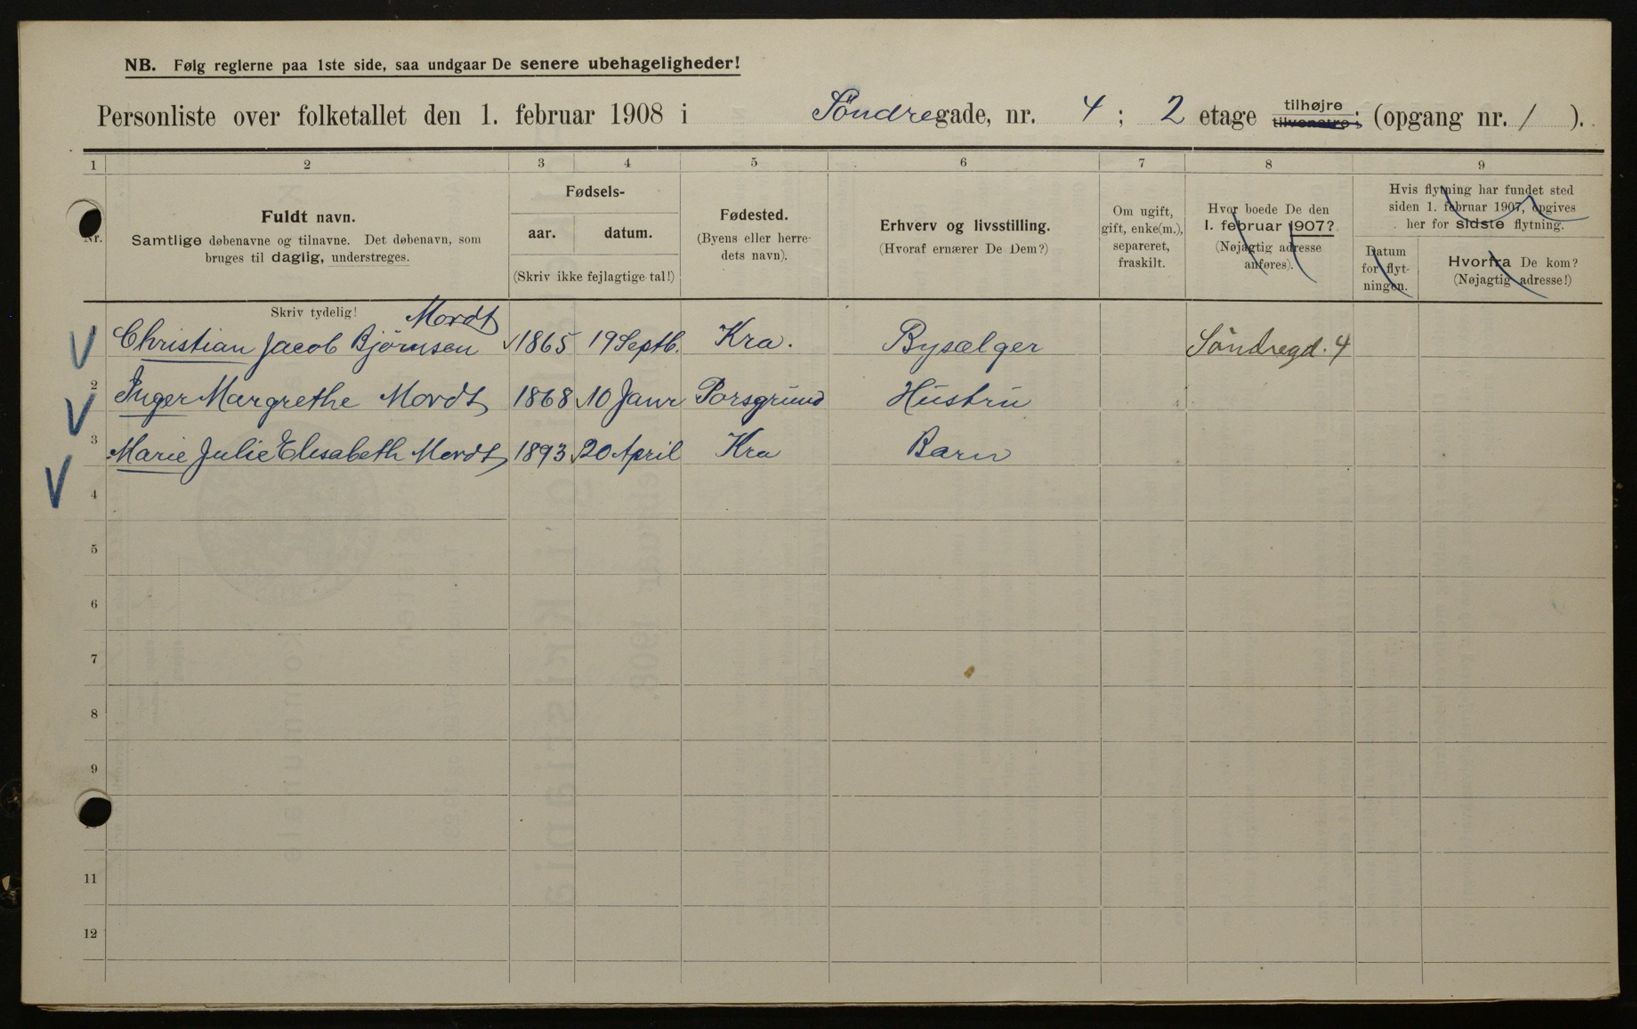 NB. Følg reglerne paa 1ste side, saa undgaar De senere ubehageligheder!
Personliste over folketallet den 1. februar 1908 i Søndregade, nr. 4; 2 etage tilhøjre tilvenstre; (opgang nr. 1).
1 2 3 4 5 6 7 8 9
Nr.
Fuldt navn.
Samtlige døbenavne og tilnavne. Det døbenavn, som
bruges til daglig, understreges.
Fødsels-
aar. datum.
(Skriv ikke fejlagtige tal!)
Fødested.
(Byens eller herre-
dets navn).
Erhverv og livsstilling.
(Hvoraf ernærer De Dem?)
Om ugift,
gift, enke(m.),
separeret,
fraskilt.
Hvor boede De den
1. februar 1907?
(Nøjagtig adresse
anføres).
Hvis flytning har fundet sted
siden 1. februar 1907, opgives
her for sidste flytning.
Datum
for flyt-
ningen.
Hvorfra De kom?
(Nøjagtig adresse!)
Skriv tydelig!
Mordt
Christian Jacob Bjørnsen 1865 19 Septb. Kra. Bysælger Søndregd. 4
2 Inger Margrethe Mordt 1868 10 Janr Porsgrund Hustru
3 Marie Julie Elisabeth Mordt 1893 20 April Kra Barn
4
5
6
7
8
9
11
12